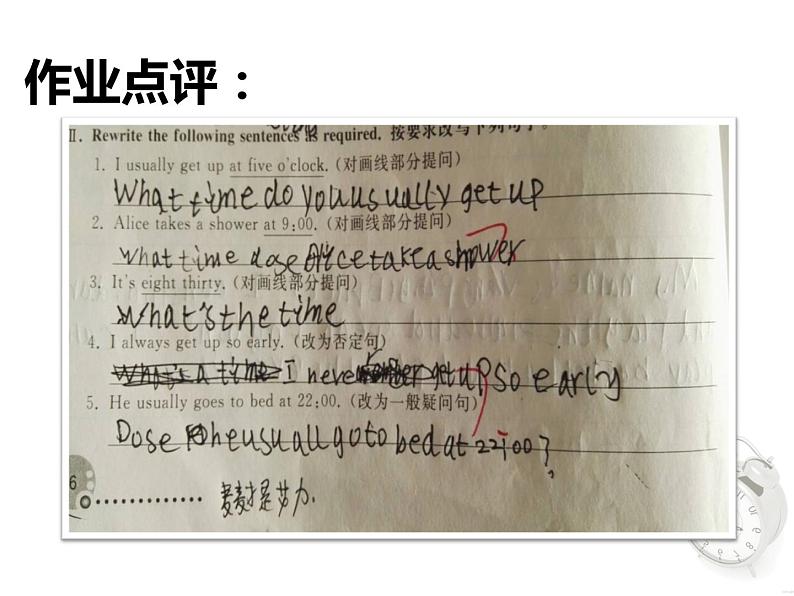 作业点评：
Ⅱ. Rewrite the following sentences as required. 按要求改写下列句子。
1. I usually get up at five o'clock. (对画线部分提问)
What time do you usually get up
2. Alice takes a shower at 9:00. (对画线部分提问)
what time dose Alice take a shower
3. It's eight thirty. (对画线部分提问)
What's the time
4. I always get up so early. (改为否定句)
I never get up so early
5. He usually goes to bed at 22:00. (改为一般疑问句)
Dose he usuall go to bed at 22:00?
6
才是艾力.